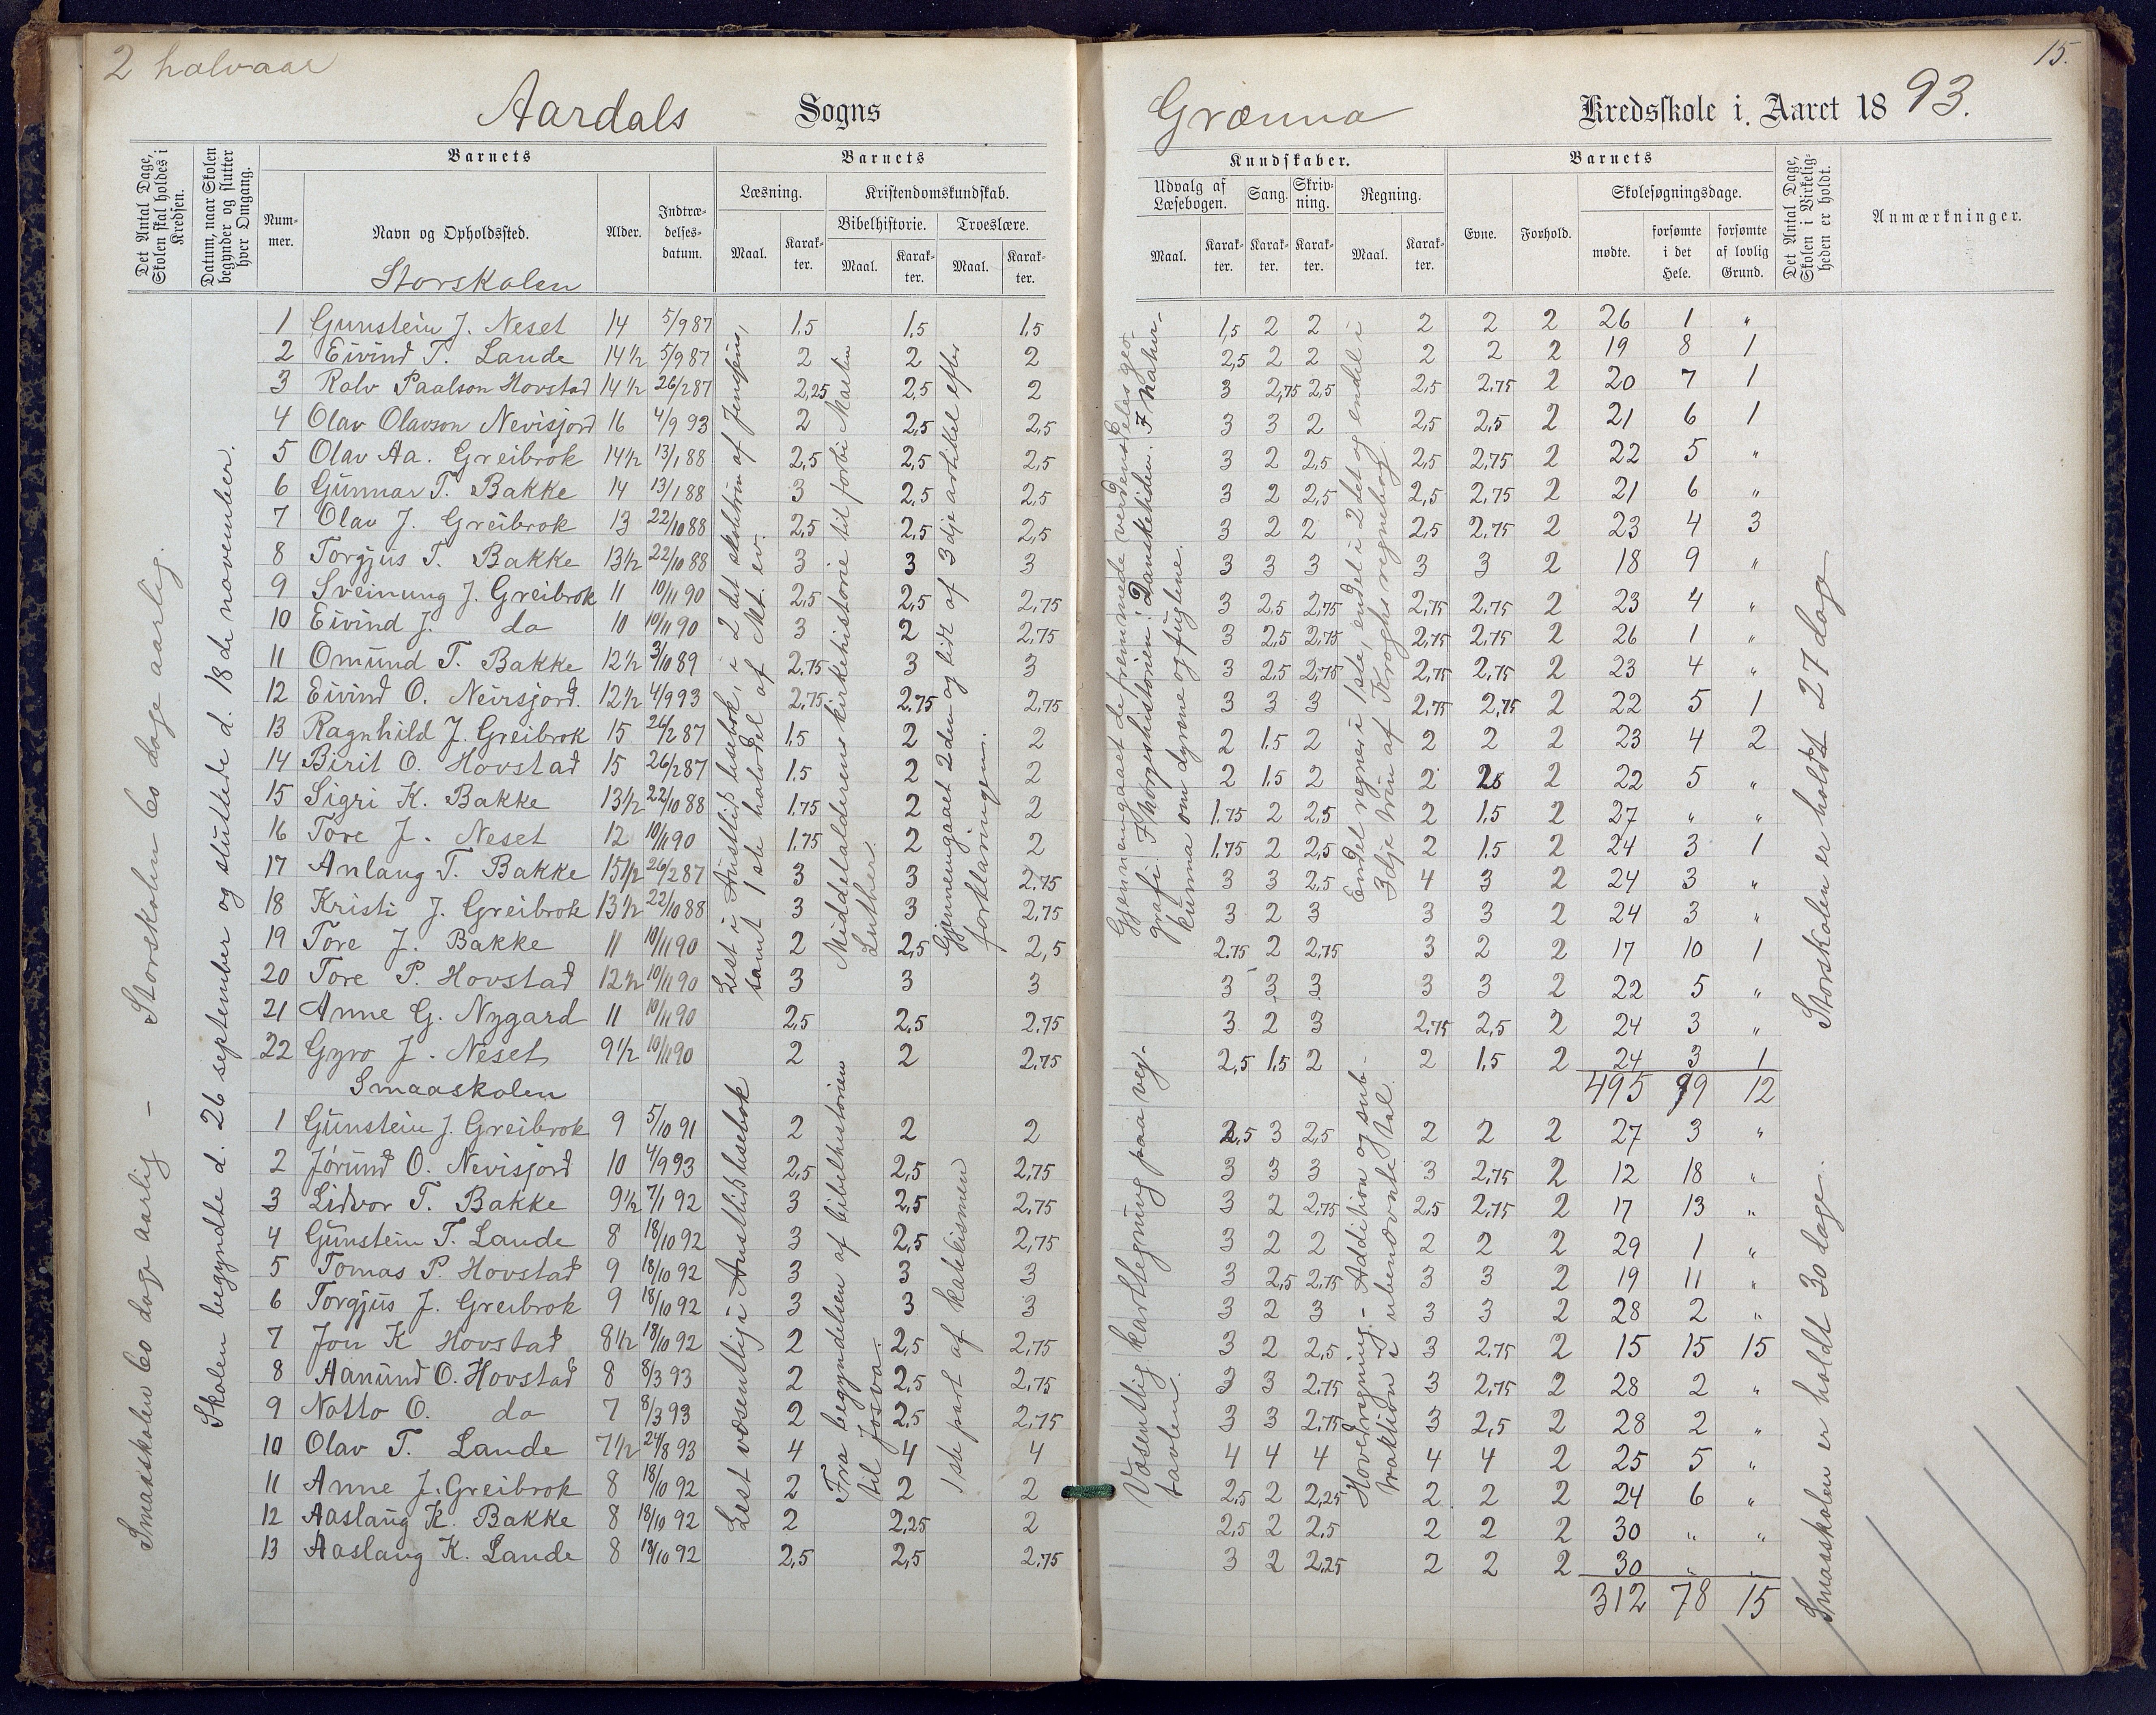 2 halvaar
Aardals Sogns
Det Antal Dage, Skolen skal holdes i Kredsen.
Datum, naar Skolen begynder og slutter hver Omgang.
Barnets
Barnets
Nummer.
Navn og Opholdssted.
Alder.
Indtrædelsesdatum.
Læsning.
Kristendomskundskab.
Bibelhistorie. Troeslære.
Maal. Karakter. Maal. Karakter. Maal. Karakter.
Storskolen
1 Gunstein J. Neset 14 5/9 87 1,5 1,5 1,5
2 Eivind T. Lande 14 1/2 5/9 87 2 2 2
3 Ralv Paalson Hovstad 14 1/2 26/2 87 2,25 2,5 2
4 Olav Olavson Nevisjord 16 4/9 93 2 2,5 2,5
5 Olav Aa. Greibrok 14 1/2 13/1 88 2,5 2,5 2,5
6 Gunnar T. Bakke 14 13/1 88 3 2,5 2,5
7 Olav J. Greibrok 13 22/10 88 2,5 2,5 2,5
8 Torgjus T. Bakke 13 1/2 22/10 88 3 3 3
9 Sveinung J. Greibrok 11 10/11 90 2,5 2,5 2,75
10 Eivind J. do 10 10/11 90 3 2 2,75
11 Omund T. Bakke 12 1/2 3/10 89 2,75 3 3
12 Eivind O. Neirsjord. 12 1/2 4/9 93 2,75 2,75 2,75
13 Ragnhild J. Greibrok 15 26/2 87 1,5 2 2
14 Birit O. Hovstad 15 26/2 87 1,5 2 2
15 Sigri K. Bakke 13 1/2 22/10 88 1,75 2 2
16 Tore J. Neset 12 10/11 90 1,75 2 2
17 Anlaug T. Bakke 15 1/2 26/2 87 3 3 2,75
18 Kristi J. Greibrok 13 1/2 22/10 88 3 3 2,75
19 Tore J. Bakke 11 10/11 90 2 2,5 2,5
20 Tore P. Hovstad 12 1/2 10/11 90 3 3 3
21 Anne G. Nygard 11 10/11 90 2,5 2,5 2,75
22 Gyro J. Neset 9 1/2 10/11 90 2 2 2,75
Smaaskolen
1 Gunstein J. Greibrok 9 5/10 91 2 2 2
2 Jørund O. Nevisjord 10 4/9 93 2,5 2,5 2,75
3 Lidvor T. Bakke 9 1/2 7/1 92 3 2,5 2,75
4 Gunstein T. Lande 8 18/10 92 3 2,5 2,75
5 Tomas P. Hovstad 9 18/10 92 3 3 3
6 Torgjus J. Greibrok 9 18/10 92 3 3 3
7 Jon K Hovstad 8 1/2 18/10 92 2 2,5 2,75
8 Aanund O. Hovstad 8 8/3 93 2 2,5 2,75
9 Notto O. do 7 8/3 93 2 2,5 2,75
10 Olav T. Lande 7 1/2 24/8 93 4 4 4
11 Anne J. Greibrok 8 18/10 92 2 2 2
12 Aaslaug K. Bakke 8 18/10 92 2 2,25 2
13 Aaslaug K. Lande 8 18/10 92 2,5 2,5 2,75
Smaaskolen 60 dage aarlig – Storskolen 60 dage aarlig.
Skolen begyndte d. 26 september og sluttede d. 18 de november.
Lest i Austlids lesebok, i 2 det skoletrin af Jensens,
samt 1ste halvdel af Mt. ev.
Middelalderens kirkehistorie til forbi Martin
Luther.
Gjennemgaaet 2den og lidt af 3dje artikel efter
forklaringen.
Lest væsentlig i Austlids lesebok
Fra begyndelsen af bibelhistorien
til Josva.
1ste part af katekismen
15.
Grænna Kredsskole i Aaret 1893.
Kundskaber.
Barnets
Udvalg af Læsebogen. Sang. Skrivning. Regning.
Evne. Forhold. Skolesøgningsdage.
Maal. Karakter. Karakter. Karakter. Maal. Karakter.
mødte. forsømte i det Hele. forsømte af lovlig Grund.
Det Antal Dage, Skolen i Virkeligheden er holdt.
Anmærkninger.
1,5 2 2 2 2 2 26 1 "
2,5 2 2 2 2 2 19 8 1
3 2,75 2,5 2,5 2,75 2 20 7 1
3 3 2 2,5 2,5 2 21 6 1
3 2 2,5 2,5 2,75 2 22 5 "
3 2 2,5 2,5 2,75 2 21 6 "
3 2 2 2,5 2,75 2 23 4 3
3 3 3 3 3 2 18 9 "
3 2,5 2,75 2,75 2,75 2 23 4 "
3 2,5 2,75 2,75 2,75 2 26 1 "
3 2,5 2,75 2,75 2,75 2 23 4 "
3 3 3 2,75 2,75 2 22 5 1
2 1,5 2 2 2 2 23 4 2
2 1,5 2 2 2 22 5 "
1,75 2 2,5 2 1,5 2 27 " "
1,75 2 2,5 2 1,5 2 24 3 1
3 3 2,5 4 3 2 24 3 "
3 2 3 3 3 2 24 3 "
2,75 2 2,75 3 2 2 17 10 1
3 3 3 3 3 2 22 5 "
3 2 3 2,75 2,5 2 24 3 "
2,5 1,5 2 2 1,5 2 24 3 1
495 99 12
2,5 3 2,5 2 2 2 27 3 "
3 3 3 3 2,75 2 12 18 "
3 2 2,75 2,5 2,75 2 17 13 "
3 2 2 2 2 2 29 1 "
3 2,5 2,75 3 3 2 19 11 "
3 2 3 3 3 2 28 2 "
3 2 2,5 3 2,75 2 15 15 15
3 3 2,75 3 2,75 2 28 2 "
3 3 2,75 3 2,5 2 28 2 "
4 4 4 4 4 2 25 5 "
2,5 2 2,25 2 2 2 24 6 "
2,5 2 2,5 2 2 2 30 " "
3 2 2,25 2 2 2 30 " "
312 78 15
Gjennemgaaet de fremmede verdensdeles geo-
grafi. I Norgeshistorien: Dansketiden. I natur-
kunna om dyrene og fuglene.
Endel regner i 1ste, endel i 2det og endel i
3dje trin af Kroghs regnebog.
Væsentlig kartlegning paa veg-
tavlen.
Hovedregning. – Addition og sub-
traktion i ubenævnte tal.
Storskolen er holdt 27 dage
Smaaskolen er holdt 30 dage.